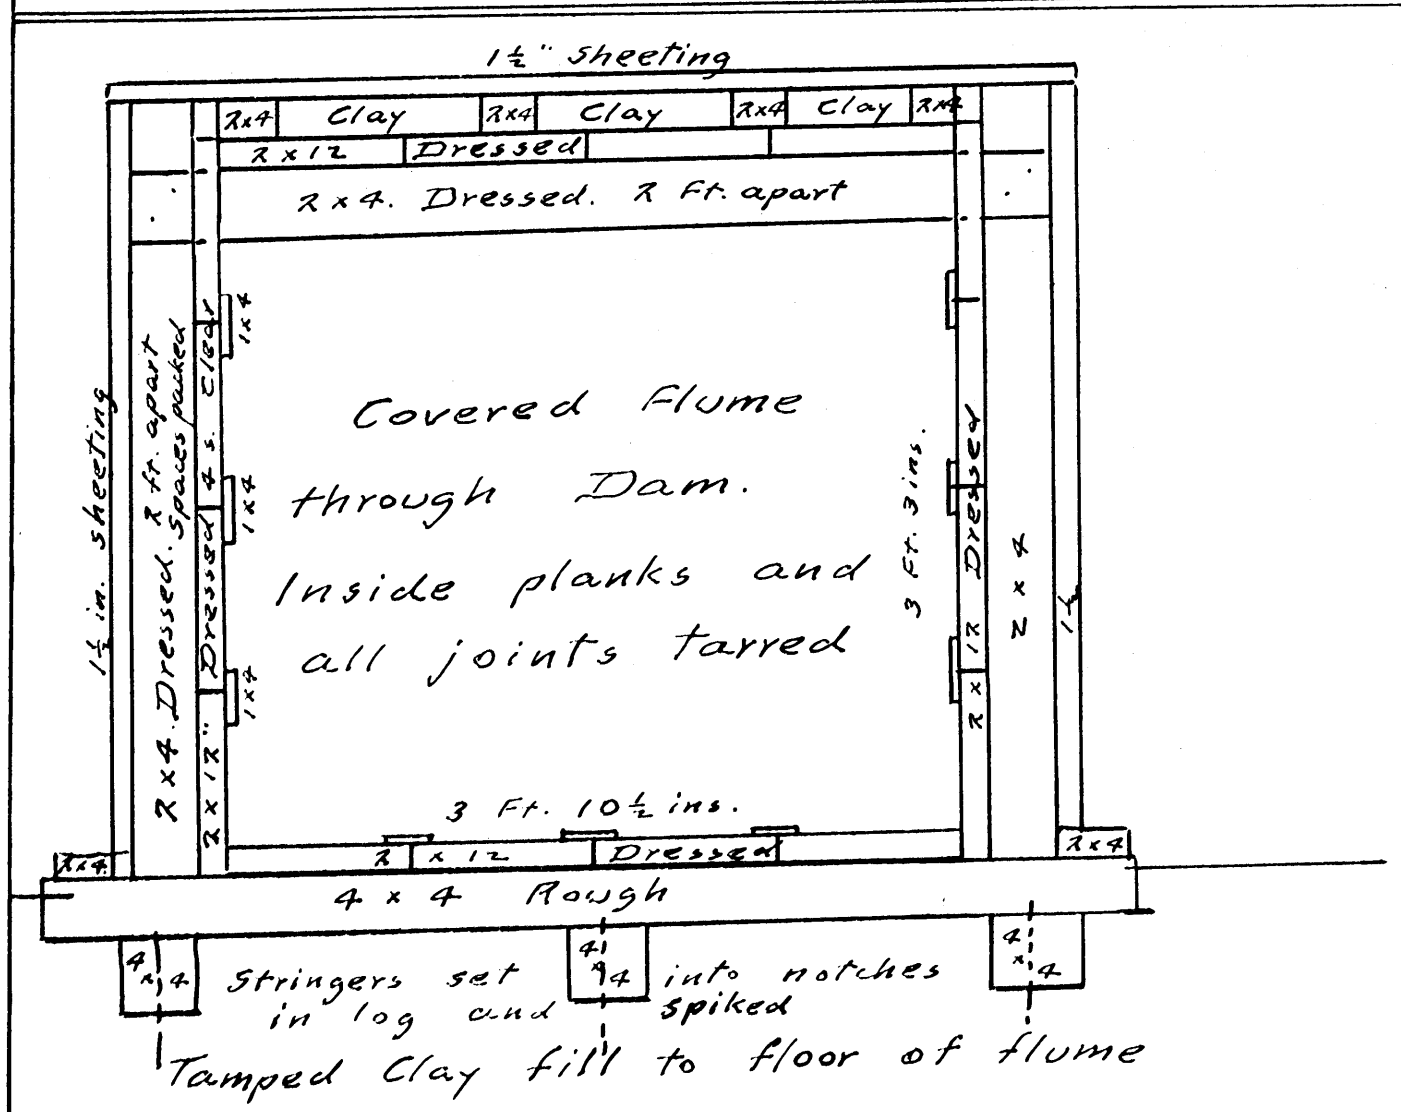 1 ½" sheeting
2x4 Clay 2x4 Clay 2x4 Clay 2x4
2 x 12 Dressed
2 x 4. Dressed. 2 Ft. apart
1 ½ in. sheeting
2 x 4. Dressed. 2 ft. apart
Spaces packed
2 x 12" Dressed 4 s. Clear
1x4
1x4
1x4
Covered Flume
through Dam.
Inside planks and
all joints Tarred
3 Ft. 3 ins.
2 x 12 Dressed
2 x 4
1 ½
3 Ft. 10 ½ ins.
2 x 12 Dressed
2x4
2x4
4 x 4 Rough
4 x 4
4 x 4
4 x 4
Stringers set into notches
in log and spiked
Tamped Clay fill to floor of flume